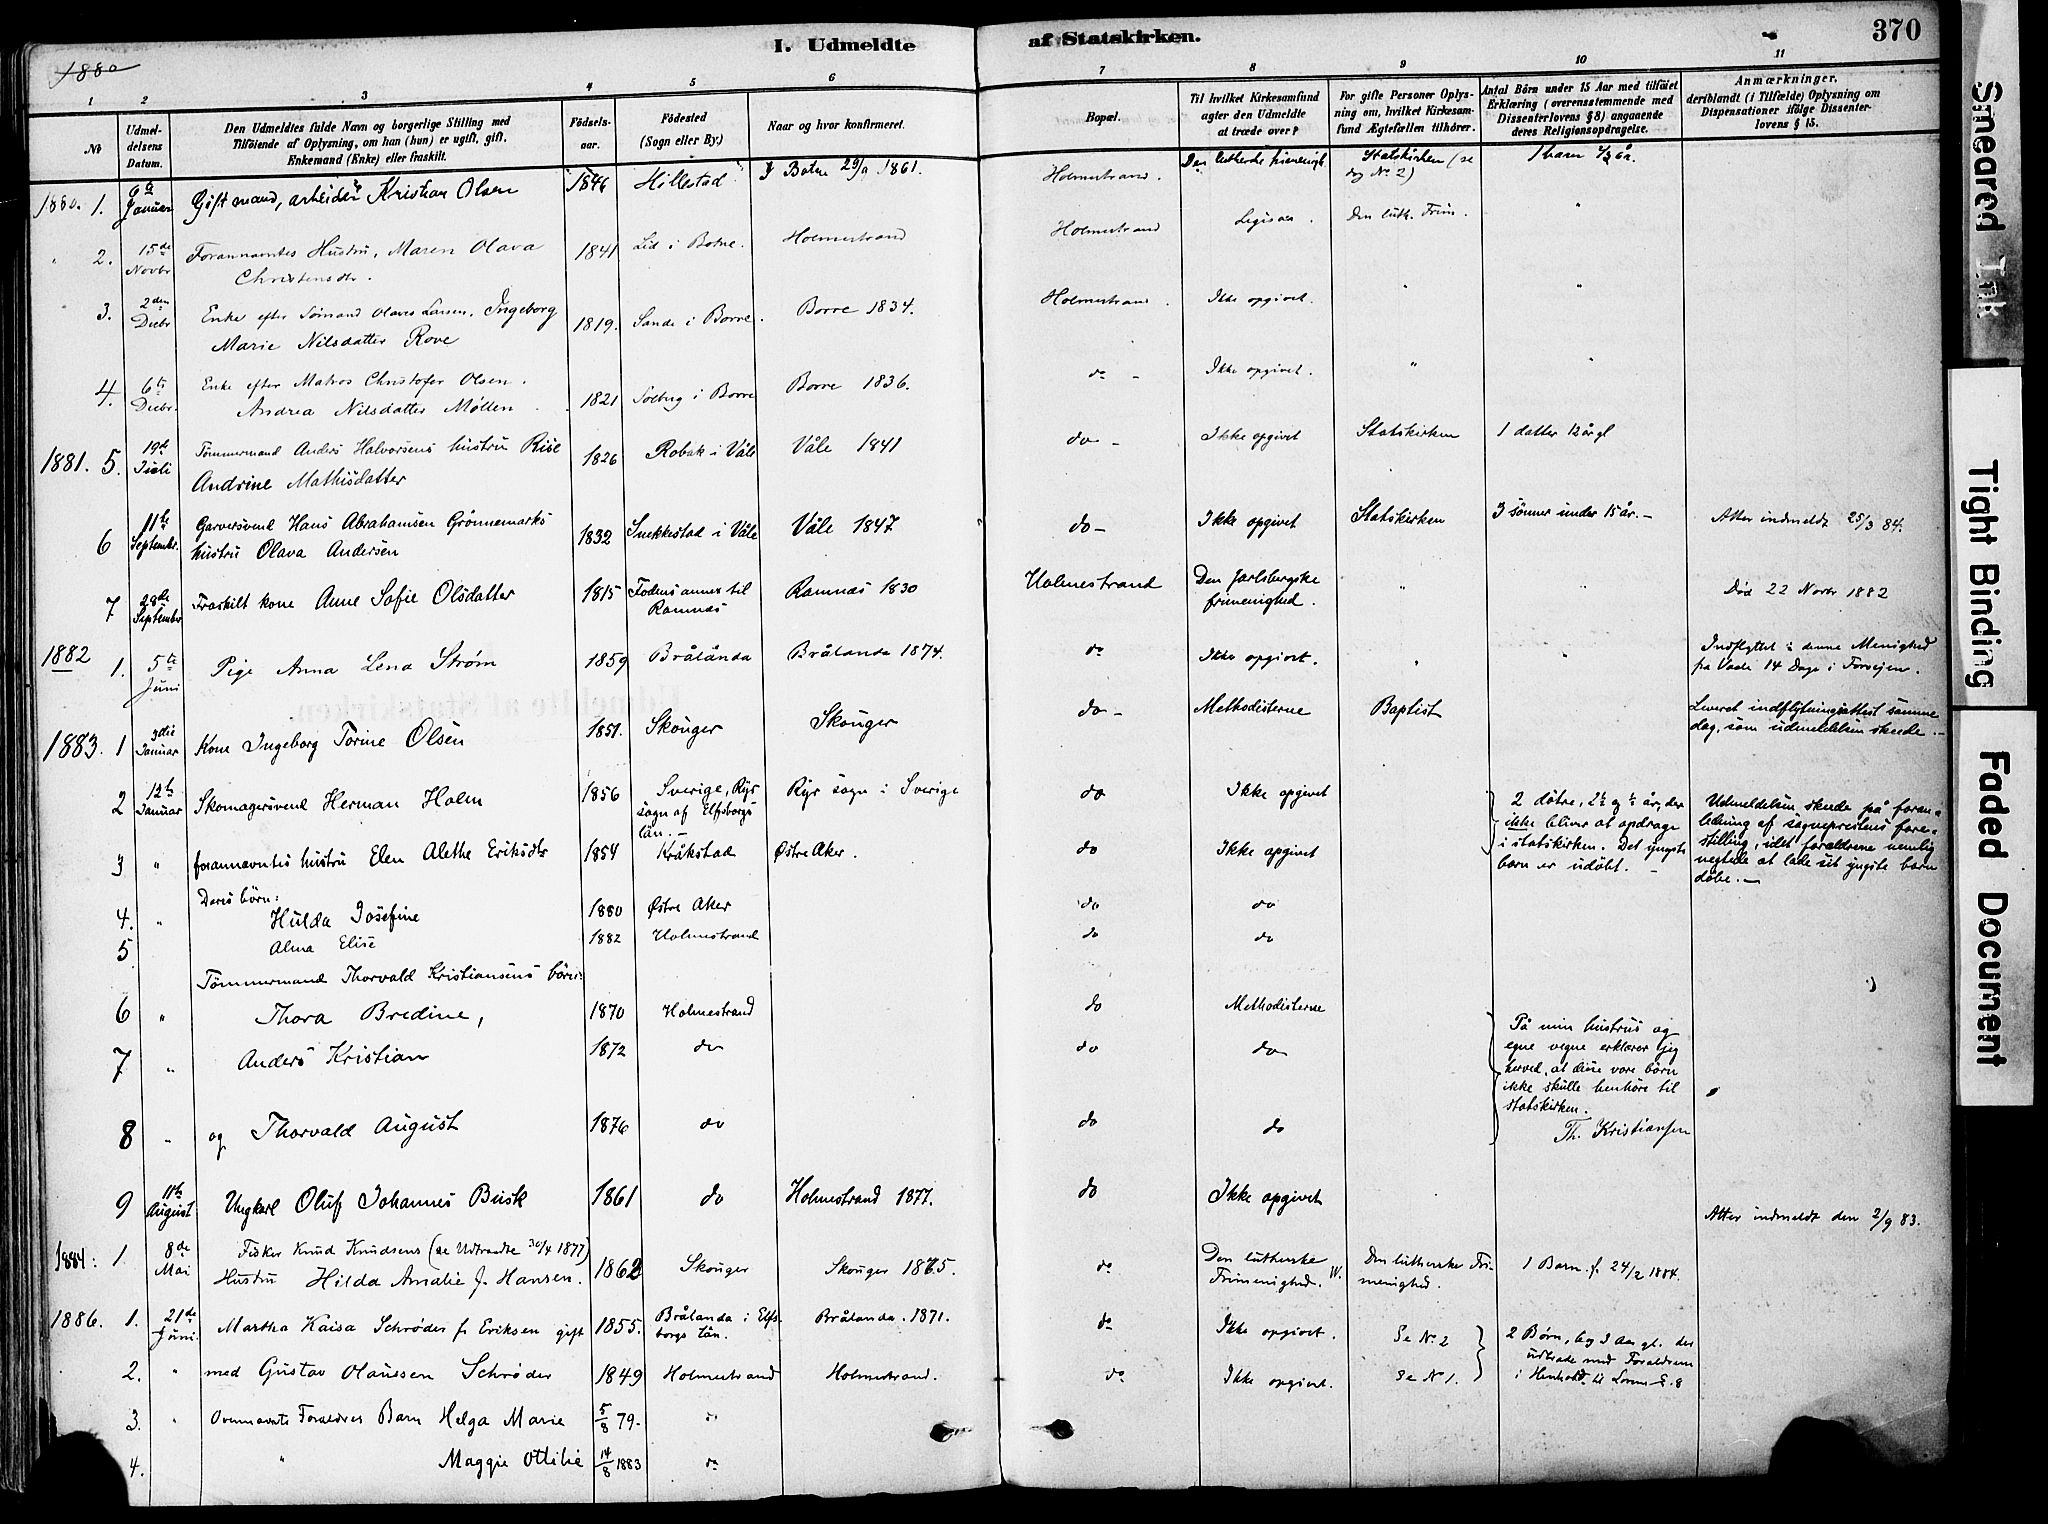 I. Udmeldte af Statskirken. 370
1880
1 2 3 4 5 6 7 8 9 10 11
No
Udmeldelsens Datum.
Den Udmeldtes fulde Navn og borgerlige Stilling med Tilföiende af Oplysning, om han (hun) er ugift, gift, Enkemand (Enke) eller fraskilt.
Födselsaar.
Födested (Sogn eller By.)
Naar og hvor konfirmeret.
Bopæl.
Til hvilket Kirkesamfund agter den Udmeldte at træde over?
For gifte Personer Oplysning om, hvilket Kirkesamfund Ægtefællen tilhörer.
Antal Börn under 15 Aar med tilföiet Erklæring (overensstemmende med Dissenterlovens § 8) angaaende deres Religionsopdragelse.
Anmærkninger, deriblandt (i Tilfælde) Oplysning om Dispensationer ifölge Dissenterlovens § 15.
1880. 1. 6te Januar Gift mand, arbeider Kristian Olsen 1846 Hillestad I Botne 29/9 1861. Holmestrand. Den lutherske frimenigh. Statskirken (se dog No 2) 1 barn 1/2 år.
2. 15de Novbr Forannævntes Hustru, Maren Olava Christensdtr. 1841 Lid i Botne. Holmestrand Holmestrand Ligesaa. Den luth. Frim. "
3. 2den Decbr Enke efter Sömand Olaves Larsen, Ingeborg Marie Nilsdatter Rove 1819. Sande i Borre. Borre 1834. Holmestrand. Ikke opgivet. " "
4. 6te Decbr. Enke efter Matros Christofer Olsen. Andrea Nilsdatter Møllen 1821 Solberg i Borre Borre 1836. do - Ikke opgivet. " "
1881. 5. 19de Juli Tömmermand Anders Halvorsens hustru Rise Andrine Mathisdatter 1826 Robak i Våle Våle 1841 do - Ikke opgivet Statskirken 1 datter 12 år gl
6 11te September. Garversvend Hans Abrahamsen Grönnemarks hustru Olava Andersen 1832 Snekkestad i Våle Våle 1847 do - Ikke opgivet Statskirken 3 sønner under 15 år. - Atter indmeldt 25/3 84.
7 28de September Fraskilt kone Anne Sofie Olsdatter 1815 Fodens annex til Ramnæs Ramnæs 1830 Holmestrand Den Jarlsbergske frimenighed. " " Død 22 Novbr 1882
1882 1. 5te Juni Pige Anna Lena Strøm 1859 Brålanda Brålanda 1874. do Ikke opgivet. " " Indflyttet i denne Menighed fra Vadi 14 Dage i Forvejen.
1883. 1 3die Januar Kone Ingeborg Torine Olsen 1851. Skouger Skouger do - Methodisterne Baptist Leveret indflytningsattest samme dag, som udmeldelsen skeede. -
2 12te Januar Skomagersvend Herman Holm 1856 Sverige, Rys sogn af Elfsborgs län. - Rys sogn i Sverige do Ikke opgivet 2 dötre, 2½ og ½ år, der ikke bliver at opdrage i statskirken. Det yngste barn er udöbt. - Udmeldelsen skeede på foranledning af sogneprestens forestilling, idet forældrene nemlig negtede at lade sit yngste barn döbe. -
3 " forannævntes hustru Elen Alethe Eriksdtr 1854 Kråkstad Østre Aker. do Ikke opgivet
Deres börn:
4. " Hulda Josefine 1880 Østre Aker do do
5 " Alma Elise 1882 Holmestrand do do
Tömmermand Thorvald Kristiansens börn:
6 " Thora Bredine, 1870 Holmestrand do Methodisterne
7 " Anders Kristian 1872 do do do
På min hustrus og egne vegne erklærer jeg herved, at disse vore börn ikke skulle henhöre til statskirken. Th. Kristiansen
8 " og Thorvald August 1876 do do do
9 11te August Ungkarl Oluf Johannes Busk 1861 do Holmestrand 1877. do Ikke opgivet Atter indmeldt den 2/9 83.
1884: 1. 8de Mai Fisker Knud Knudsens (se Udtraadte 30/4 1877) Hustru Hilda Amalie f. Hansen. 1862 Skouger Skouger 1875. do Den lutherske Frimenighed. W. Den lutherske Frimenighed. 1 Barn f. 24/2 1884.
1886. 1. 21de Juni. Martha Kaisa Schrøder f. Eriksen gift 1855. Brålanda i Elfsborgs län. Brålanda. 1871. do Ikke opgivet. Se No 2 2 Börn, 6 og 3 Aar gl. der udtræde med Forældrene i Henhold til Lovens § 8
2. " med Gustav Olaussen Schrøder 1849 Holmestrand Holmestrand. do Ikke opgivet. Se No 1.
3. " Ovennævnte Forældres Barn Helga Marie 5/8 79. do
4. " Maggie Ottilie 14/8 1883 do
Smeared Ink
Tight Binding
Faded Document